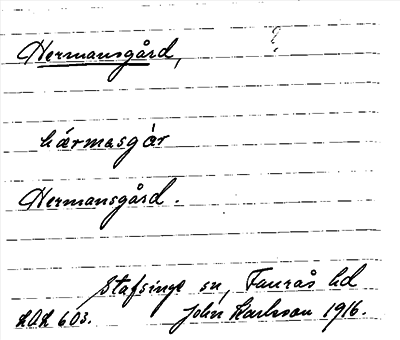 Hermansgård, ?
härmasgär
Hermansgård.
Stafsinge sn, Faurås hd
John Karlsson 1916.